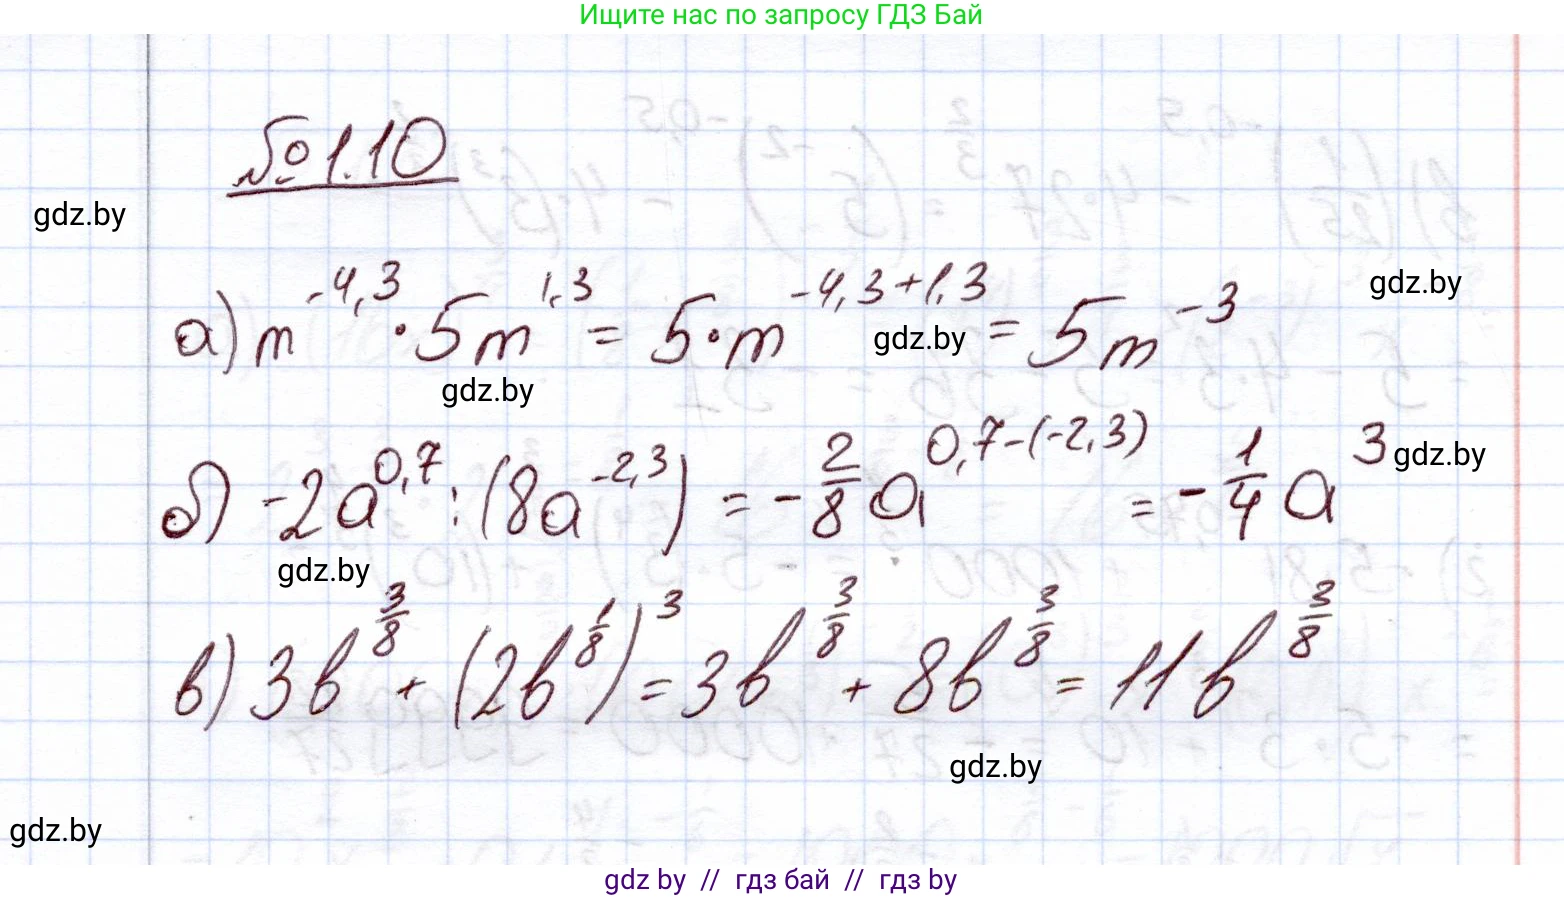 Ищите нас по запросу ГДЗ Бай
№ 1.10
gdz.by
а) m^{-4,3} · 5m^{1,3} = 5 · m^{-4,3+1,3} = 5m^{-3}
gdz.by
gdz.by
gdz.by
б) -2a^{0,7} : (8a^{-2,3}) = -\frac{2}{8}a^{0,7-(-2,3)} = -\frac{1}{4}a^{3}
gdz.by
gdz.by
в) 3b^{\frac{3}{8}} + (2b^{\frac{1}{8}})^{3} = 3b^{\frac{3}{8}} + 8b^{\frac{3}{8}} = 11b^{\frac{3}{8}}
gdz.by
gdz.by
gdz by // гдз бай // гдз by